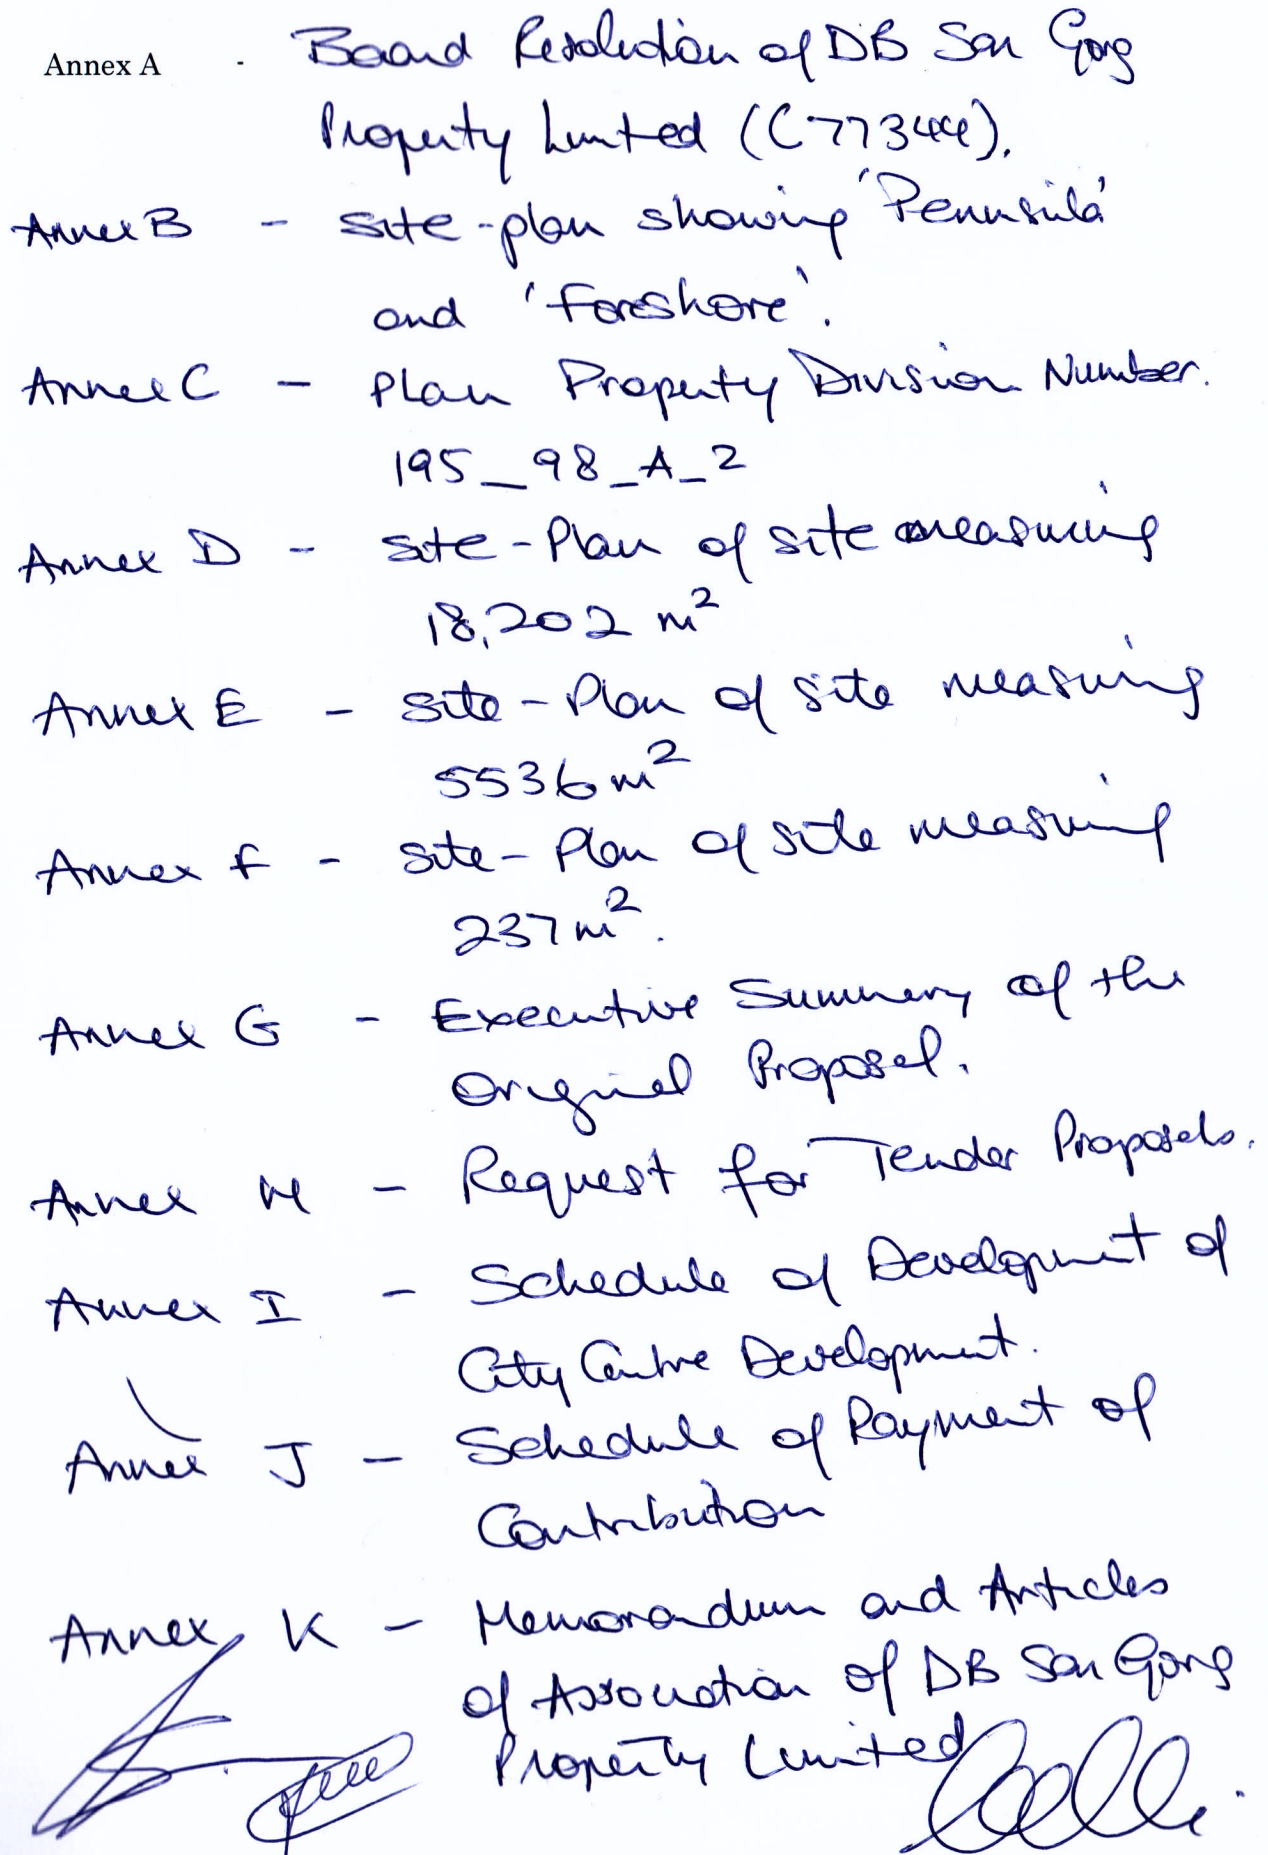 Annex A - Board Resolution of DB San Gorg
Property Limited (C 77344).
Annex B - site-plan showing 'Peninsula'
and 'Foreshore'.
Annex C - Plan Property Division Number.
195_98_A_2
Annex D - site-Plan of site measuring
18,202 m²
Annex E - site-Plan of site measuring
5536 m²
Annex F - site-Plan of site measuring
237 m².
Annex G - Executive Summary of the
Original Proposal.
Annex H - Request for Tender Proposals.
Annex I - Schedule of Development of
City Centre Development.
Annex J - Schedule of Payment of
Contribution
Annex K - Memorandum and Articles
of Association of DB San Gorg
Property Limited